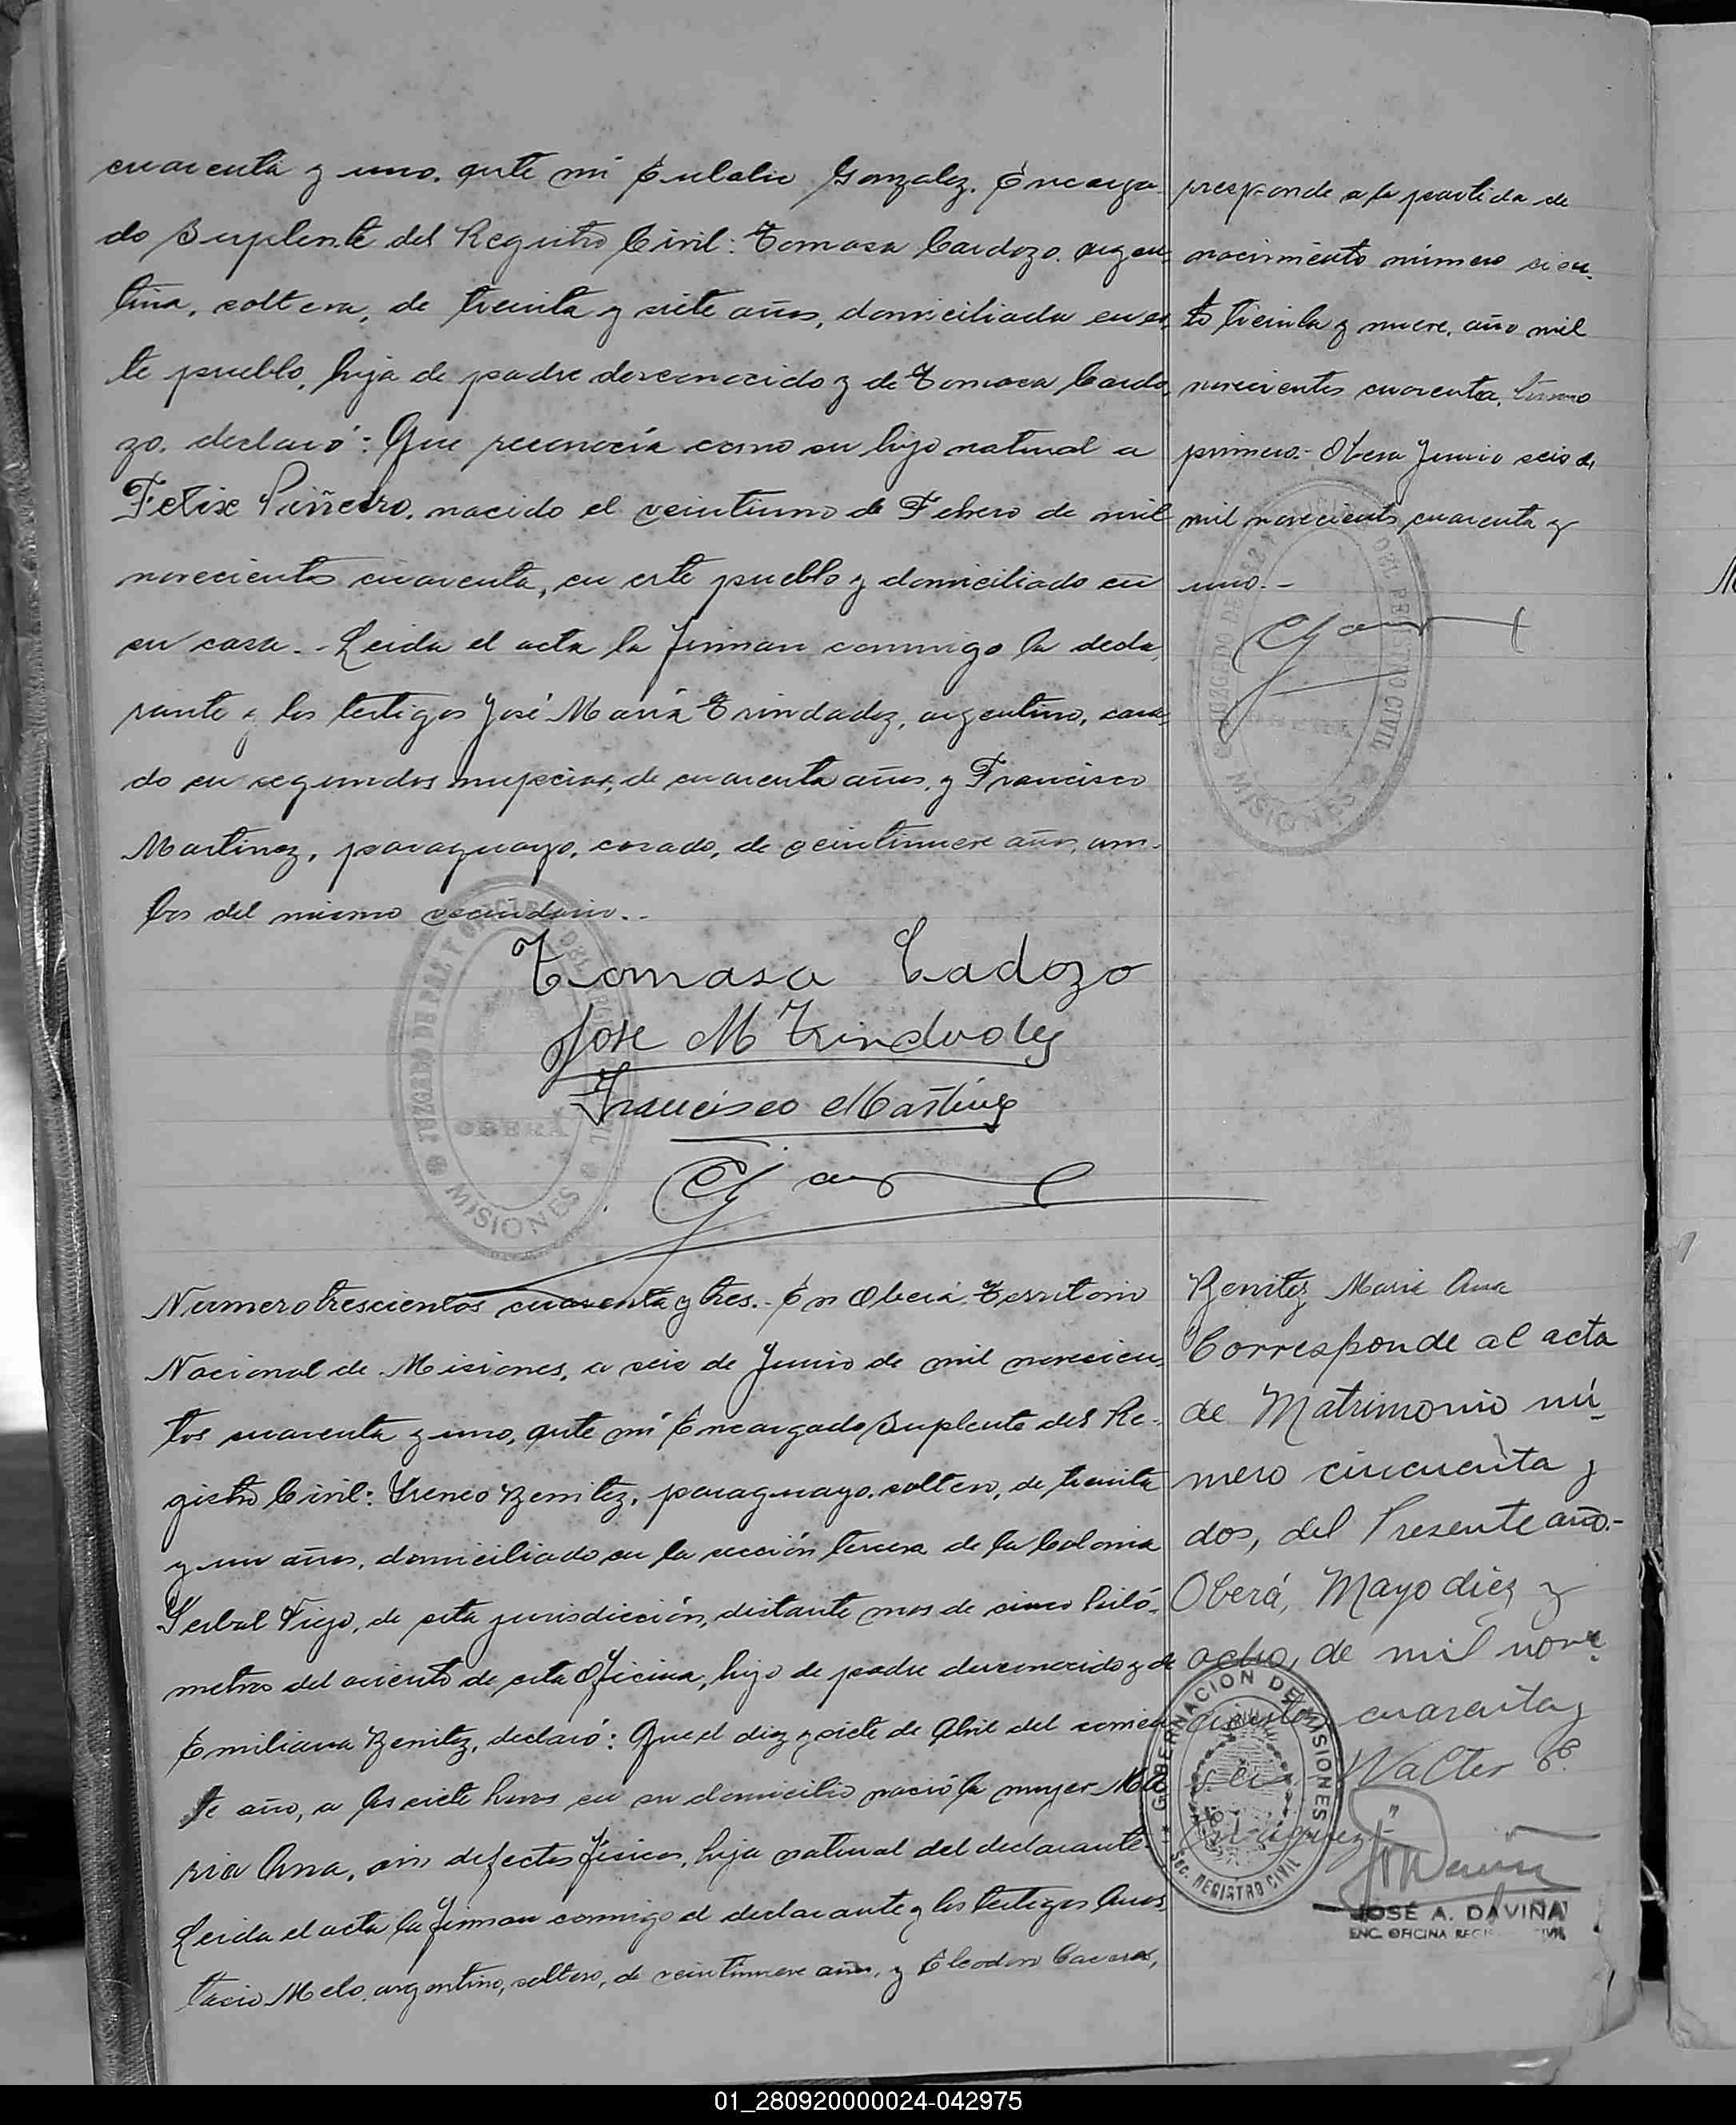 cuarenta y uno, ante mi Eulalio Gonzalez, Encarga-
do Suplente del Registro Civil: Tomasa Cardozo, argen-
tina, soltera, de treinta y siete años, domiciliada en es-
te pueblo, hija de padre desconocido y de Tomasa Cardo-
zo, declaró: Que reconocía como su hijo natural a
Felix Piñeiro, nacido el veintiuno de Febrero de mil
novecientos cuarenta, en este pueblo y domiciliado en
su casa.- Leida el acta la firman conmigo la decla-
rante y los testigos José María Trindadez, argentino, casa-
do en segundas nupcias, de cuarenta años, y Francisco
Martinez, paraguayo, casado, de veintinueve años, am-
bos del mismo vecindario.-
Tomasa Cadozo
Jose M Trindadez
Francisco Martinez
JUZGADO DE PAZ Y OFICINA DEL REGISTRO CIVIL
OBERÁ
MISIONES
presponde a la partida de
nacimiento número cien-
to treinta y nueve, año mil
novecientos cuarenta, tomo
primero.- Obera Junio seis de
mil novecientos cuarenta y
uno.-
JUZGADO DE PAZ Y OFICINA DEL REGISTRO CIVIL
OBERÁ
MISIONES
Numero trescientos cuarenta y tres.- En Oberá, Territorio
Nacional de Misiones, a seis de Junio de mil novecien-
tos cuarenta y uno, ante mi Encargado Suplente del Re-
gistro Civil: Ireneo Benitez, paraguayo, soltero, de treinta
y un años, domiciliado en la sección tercera de la Colonia
Yerbal Viejo, de esta jurisdicción, distante mas de cinco kiló-
metros del asiento de esta Oficina, hijo de padre desconocido y de
Emiliana Benitez, declaró: Que el diez y siete de Abril del corrien-
te año, a las siete horas en su domicilio nació la mujer Ma-
ria Ana, sin defectos físicos, hija natural del declarante.-
Leida el acta la firman conmigo el declarante y los testigos Anas-
tacio Melo, argentino, soltero, de veintinueve años, y Eleodoro
Benitez Maria Ana
Corresponde al acta
de Matrimonio nú-
mero cincuenta y
dos, del Presente año.-
Oberá, Mayo diez y
ocho, de mil nove-
cientos cuarenta y
seis. Walter
GOBERNACION DE MISIONES
SEC. REGISTRO CIVIL
JOSÉ A. DAVIÑA
ENC. OFICINA REGISTRO CIVIL
01_280920000024-042975